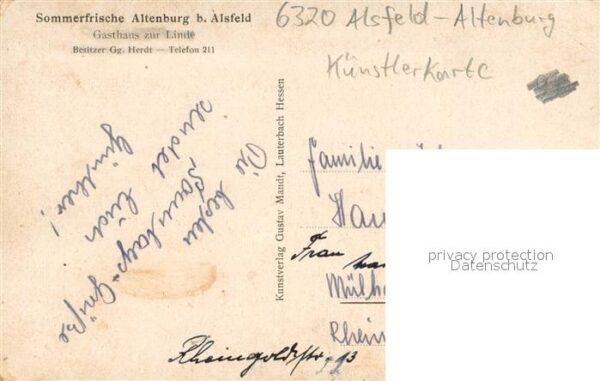 Sommerfrische Altenburg b. Alsfeld
Gasthaus zur Linde
Besitzer Gg. Herdt — Telefon 211
6320 Alsfeld - Altenburg
Künstlerkarte
Die besten
Sonntags-Grüße
sendet Euch
Günther!
Kunstverlag Gustav Mandt, Lauterbach Hessen
Familie
Frau
Mülh
Rhein
Rheingoldstr 93
privacy protection
Datenschutz